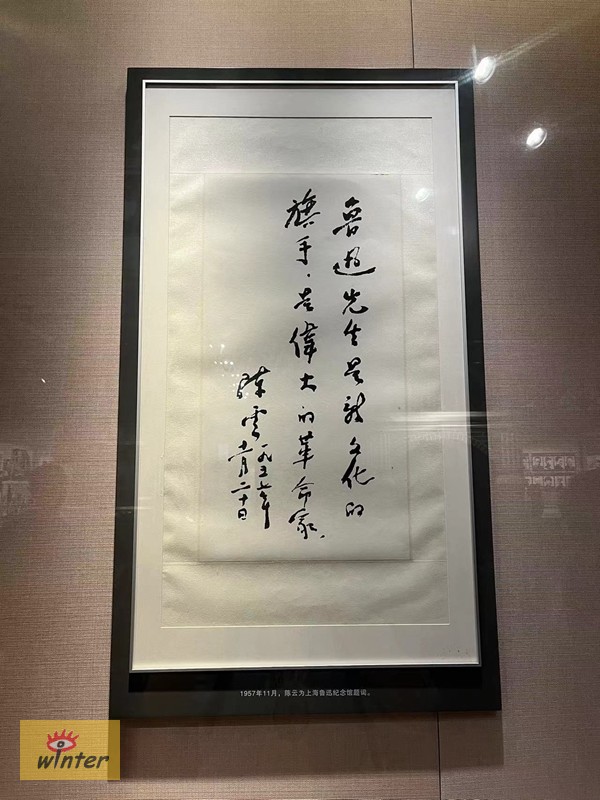 魯迅先生是新文化的
旗手，是偉大的革命家。
陳雲
一九五七年
十一月二十日
1957年11月，陈云为上海鲁迅纪念馆题词。
winter